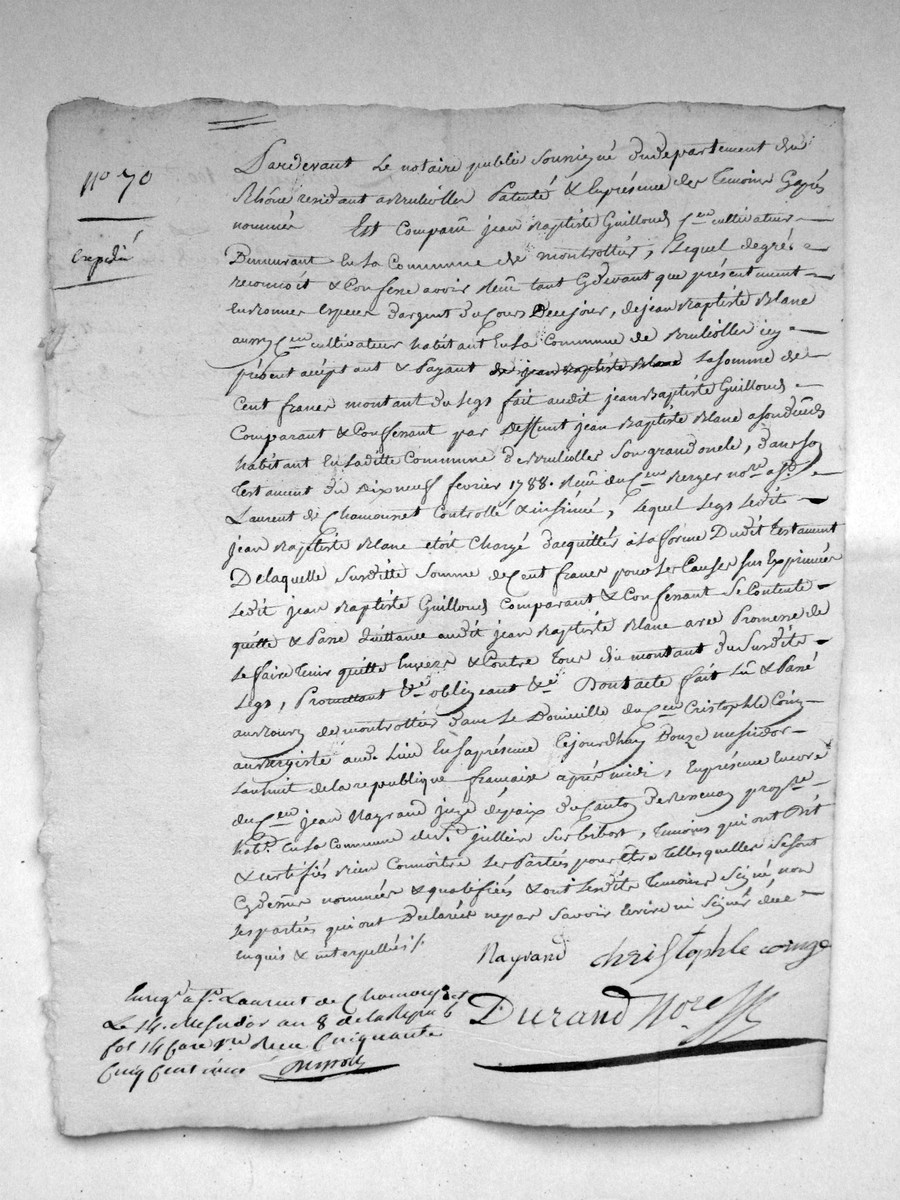 No 70
Expedié
Pardevant Le notaire public Soussigné du departement du
Rhône residant a Brullioller Patenté & Enprésence des Temoins Cy après
nommés Est Comparu jean Baptiste Guilloud Cen cultivateur
Demeurant En La Commune de montrottier, Lequel de gré a
reconnoit & Confesse avoir Recu tant Cydevant que présentement
En bonnes Especes d'argent du Cours De ce jour, de jean Baptiste Blanc
aussy Cen cultivateur habitant En La Commune de Brullioller icy
présent acéptant & Payant de jean Baptiste Blanc La Somme de
Cent francs montant du Legs fait audit jean Baptiste Guilloud
Comparant & Confessant par Deffunt jean Baptiste Blanc
habitant En Laditte Commune de Brullioller Son grand oncle, dans So
Testament du Dixneuf fevrier 1788. Recu du Cen Berger nore a St
Laurent de Chamousset Controllé & insinué, Lequel Legs Ledit
jean Baptiste Blanc etoit Chargé d'acquitter à La forme Dudit Testament
De laquelle Susditte Somme de Cent francs pour les Causes Sus Exprimées
Ledit jean Baptiste Guilloud Comparant & Confessant Se Contente
quitte & Passe Quittance audit jean Baptiste Blanc avec Promesse de
Le faire Tenir quitte Envers & Contre Tous du montant du Susdit
Legs, Promettant &e obligeant &e Dont acte fait Lû & Passé
au Bourg de montrottier dans Le Domicille du Cen Cristophle Coing
aubergiste aud. Lieu En Sa présence Cejourdhuy Douze messidor
Lan huit de la republique française après midi, En présence Encore
du Cen jean Nayrand juge de paix du Canton de Bessenay propre
habt En La Commune de St jullien Sur bibost, Temoins qui ont Dit
& certifiés Bien Connoitre Les Parties pour être Telles quelles Se Sont
Cydessus nommées & qualifiées & ont Lesdits Temoins Signé, non
Les parties qui ont Declarées ne pas Savoir Ecrire ni Signer de ce
Enquis & interpellés /.
Nayrand christophle coinge
Durand Nore
Enregé à St Laurent de Chamousset
Le 14 Messidor an 8 de la Repub
fol 14 Case Recu Cinquante
Cinq Centimes